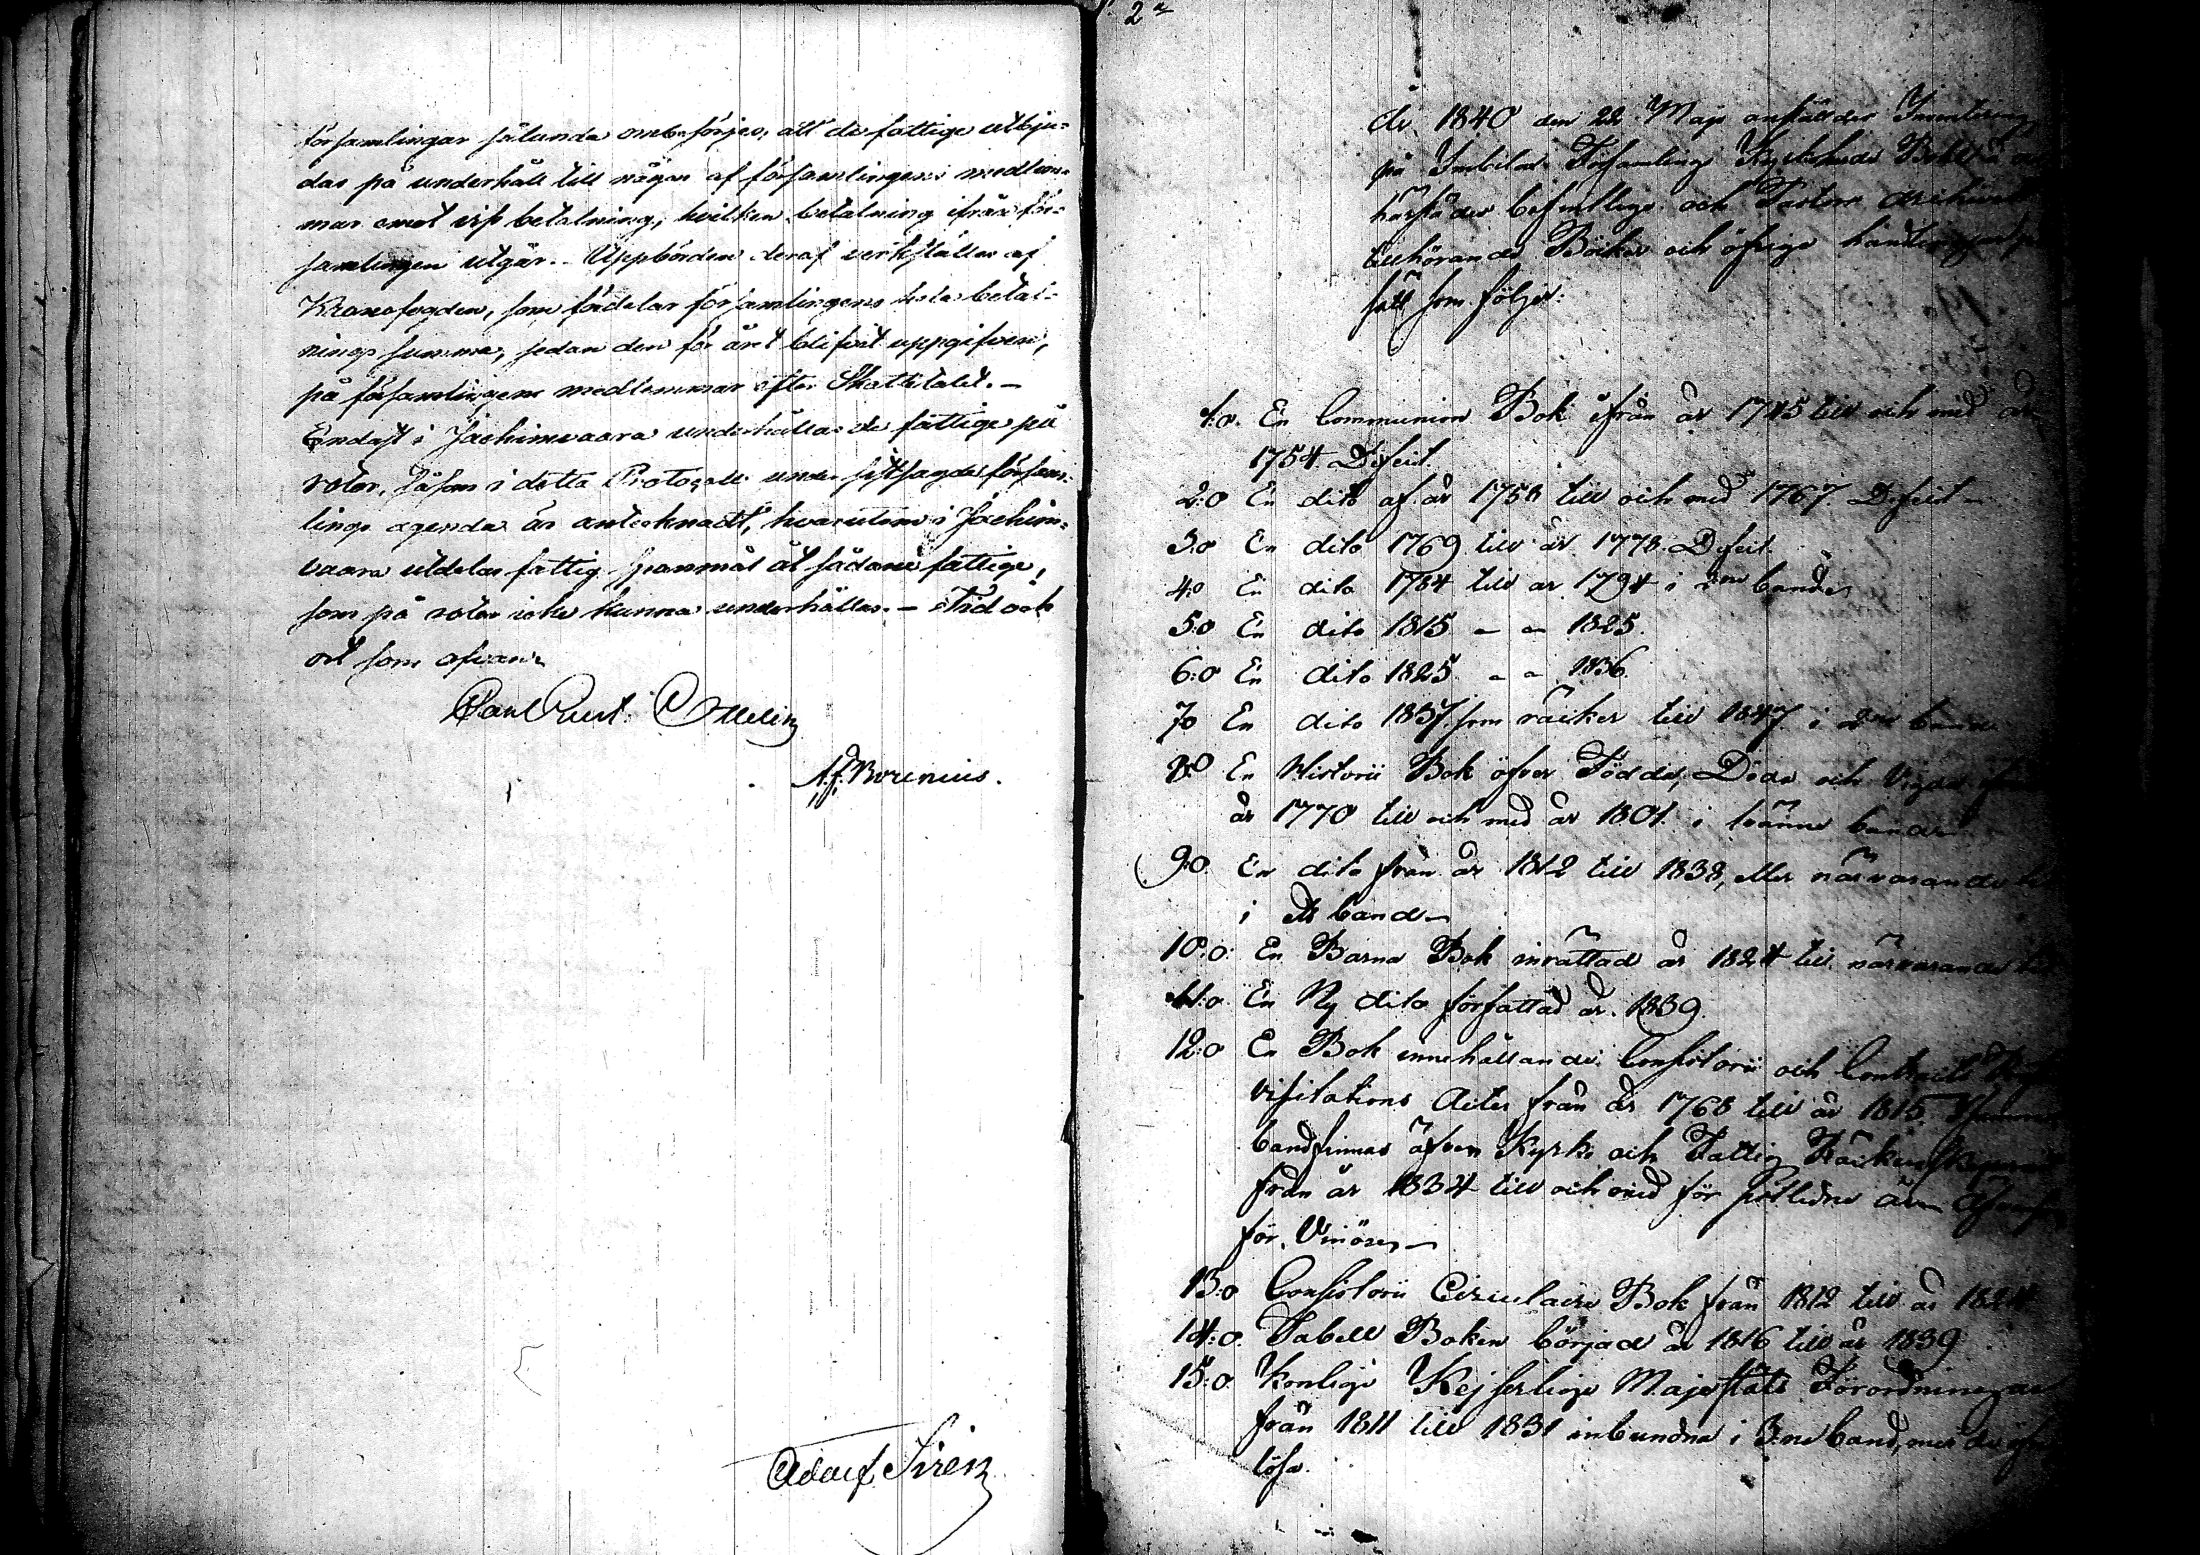 församlingar sålunda ombesörjes, att de fattige utbju-
das på underhåll till någon af församlingens medlem-
mar emot viss betalning, hvilken betalning ifrån för-
samlingen utgår. Uppbörden deraf verkställes af
Kronofogden, som fördelar församlingens hela betal-
nings summa, sedan den för året blifvit uppgifven,
på församlingens medlemmar efter Skattetalet. -
Endast i Jachimvaara underhållas de fattige på
rotar, såsom i detta Protocoll under sistsagde försam-
lings agenda är antecknadt, hvarutom i Jachim-
vaara utdelas fattig spanmål åt sådane fattige,
som på rotar icke kunna underhållas. - Tid och
ort som ofvan
Carl Gust.
A. J. Borenius.
Adolf Sirén
2
År 1840 den 22 Maji anställdes Inventering
på Imbilax Församlings Kyrkoherde Boställe
härstädes befintlige och Pastors Archivet
tillhörande Böcker och öfrige handlingar
sätt som följer:
1:o. En Communion Bok ifrån år 1745 till och med år
1754. Defect.
2:o En dito af år 1758 till och med 1767. Defect -
3:o En dito 1769 till år 1778. Defect.
4:o En dito 1784 till år 1794 i band
5:o En dito 1815 - - 1825.
6:o En dito 1825 - - 1836.
7o En dito 1837. som räcker till 1847. i
8:o En Historii Bok öfver Födde, Döde och Vigde
år 1770 till och med år 1801. i tvänne band
9:o. En dito från år 1812 till 1838, eller närvarande
i ett band -
10:o: En Barna Bok inrättad år 1824 till närvarande
11:o En Ny dito författad år 1839.
12:o En Bok innehållande Consistorii och Contracts
visitations Acter från år 1768 till år 1815.
band finnas äfven Kyrko och Fattig Räkenskaperne
från år 1834 till och med för sistledne år
för
13:o Consistorii Circulaire Bok från 1812 till år
14:o. Tabell Boken börjad år 1816 till år 1839
15:o. Konlige Kejserlige Majestäts Förordningar
från 1811 till 1831 inbundne i 3:ne band,
lösa.